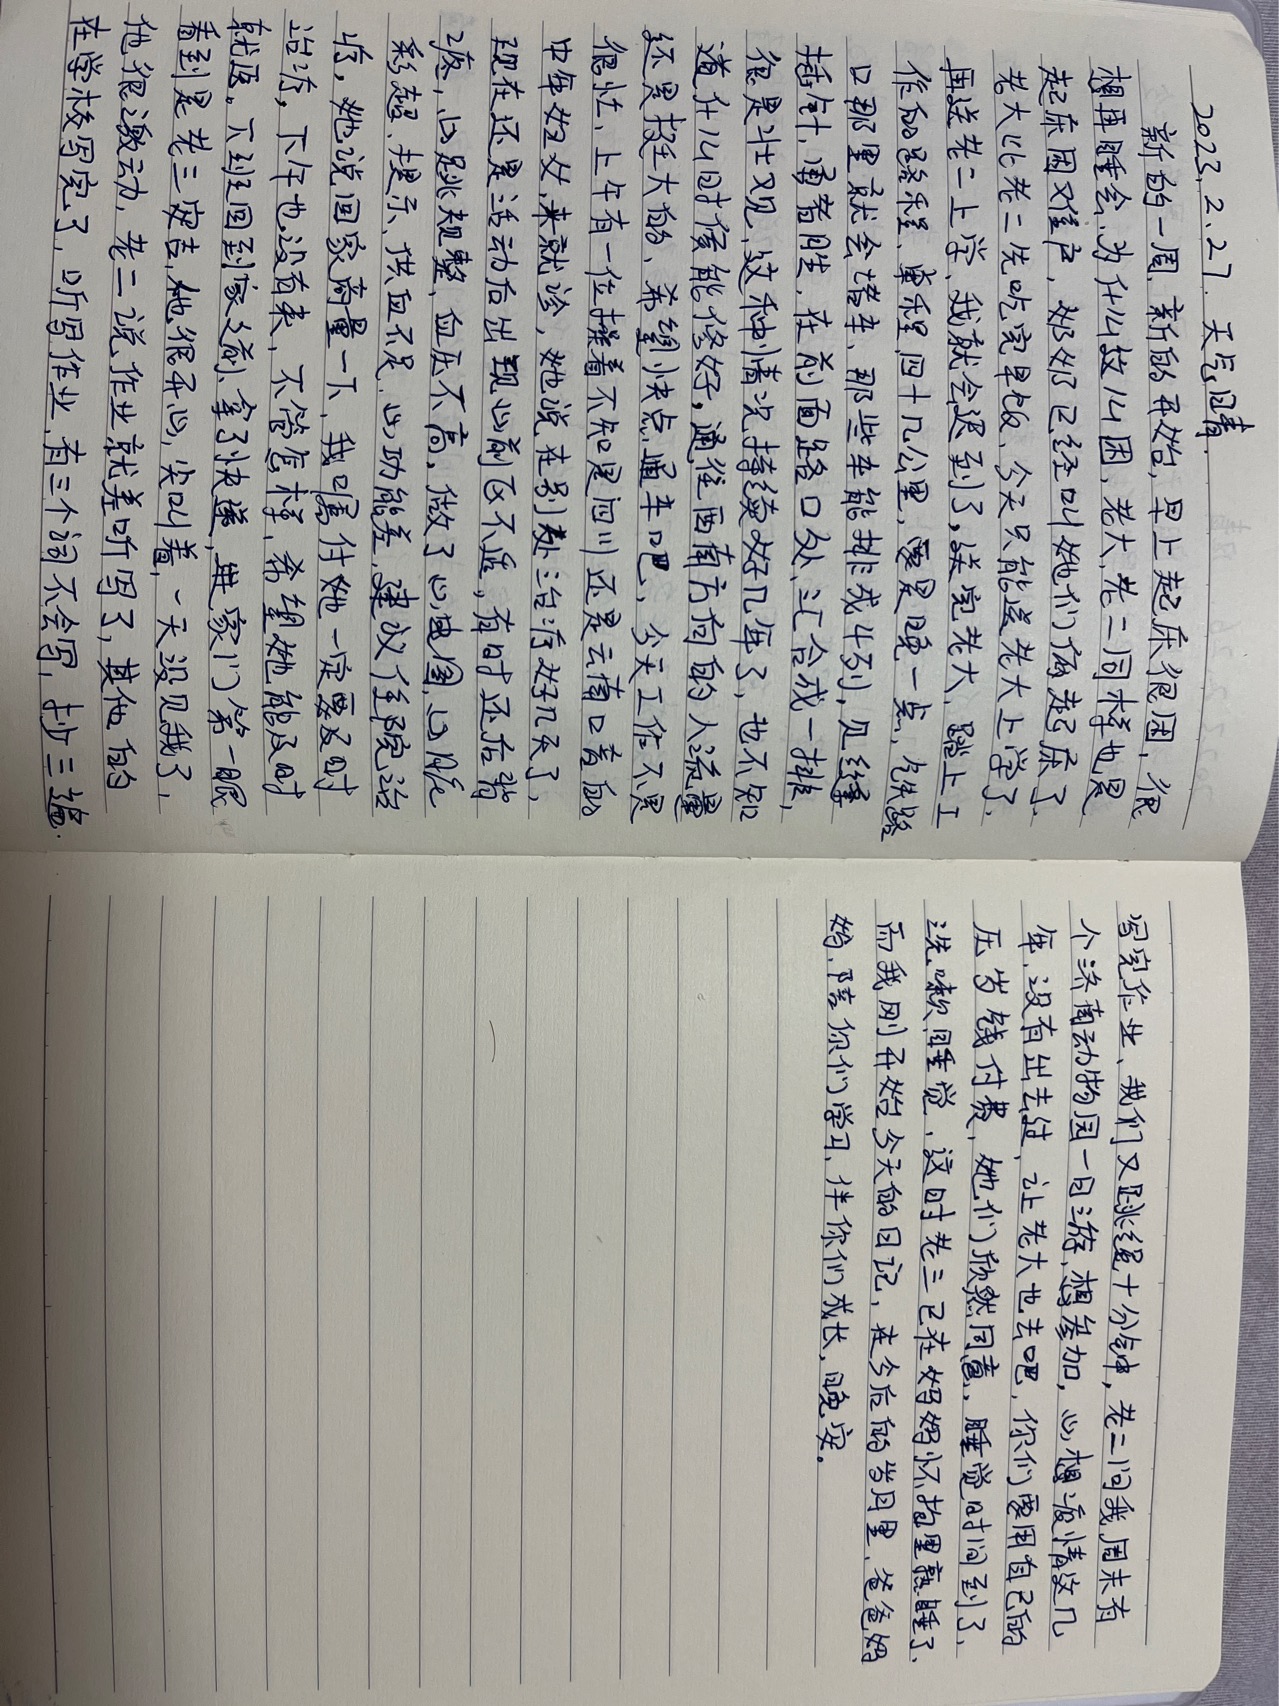 2023.2.27. 天气晴.
新的一周,新的开始,早上起床很困,很
想再睡会,为什么这么困,老大,老二同样也是
起床困难户,奶奶已经叫她们俩起床了.
老大比老二先吃完早饭,今天只能送老大上学了.
再送老二上学,我就会迟到了,送完老大,踏上工
作的路程,单程四十几公里,要是晚一点,先铁路
口那里就会堵车,那些车能排成4列,见缝
插针,勇者胜,在前面路口处,汇合成一排,
很是壮观,这种情况持续好几年了,也不知
道什么时候能修好,通往西南方向的人流量
还是挺大的,希望快点通车吧,今天工作不是
很忙,上午有一位操着不知是四川还是云南口音的
中年妇女,来就诊,她说在别处治疗好几天了,
现在还是活动后出现心前区不适,有时还后背
疼,心跳规整,血压不高,做了心电图,心脏
彩超,提示,供血不足,心功能差,建议住院治
疗,她说回家商量一下,我嘱付她一定要及时
治疗,下午也没有来,不管怎样,希望她能及时
就医,下班回到家之前,拿了快递,进家门第一眼
看到是老三安吉,她很开心,尖叫着,一天没见我了,
他很激动,老二说,作业就差听写了,其他的
在学校写完了,听写作业,有三个词不会写,抄三遍.
写完作业,我们又跳绳十分钟,老二问我周末有
个济南动物园一日游,想参加,心想疫情这几
年,没有出去过,让老大也去吧,你们要用自己的
压岁钱付费,她们欣然同意,睡觉时间到了,
洗漱睡觉,这时老三已在妈妈怀抱里熟睡了.
而我刚开始今天的日记,在今后的岁月里,爸爸妈
妈,陪你们学习,伴你们成长,晚安.